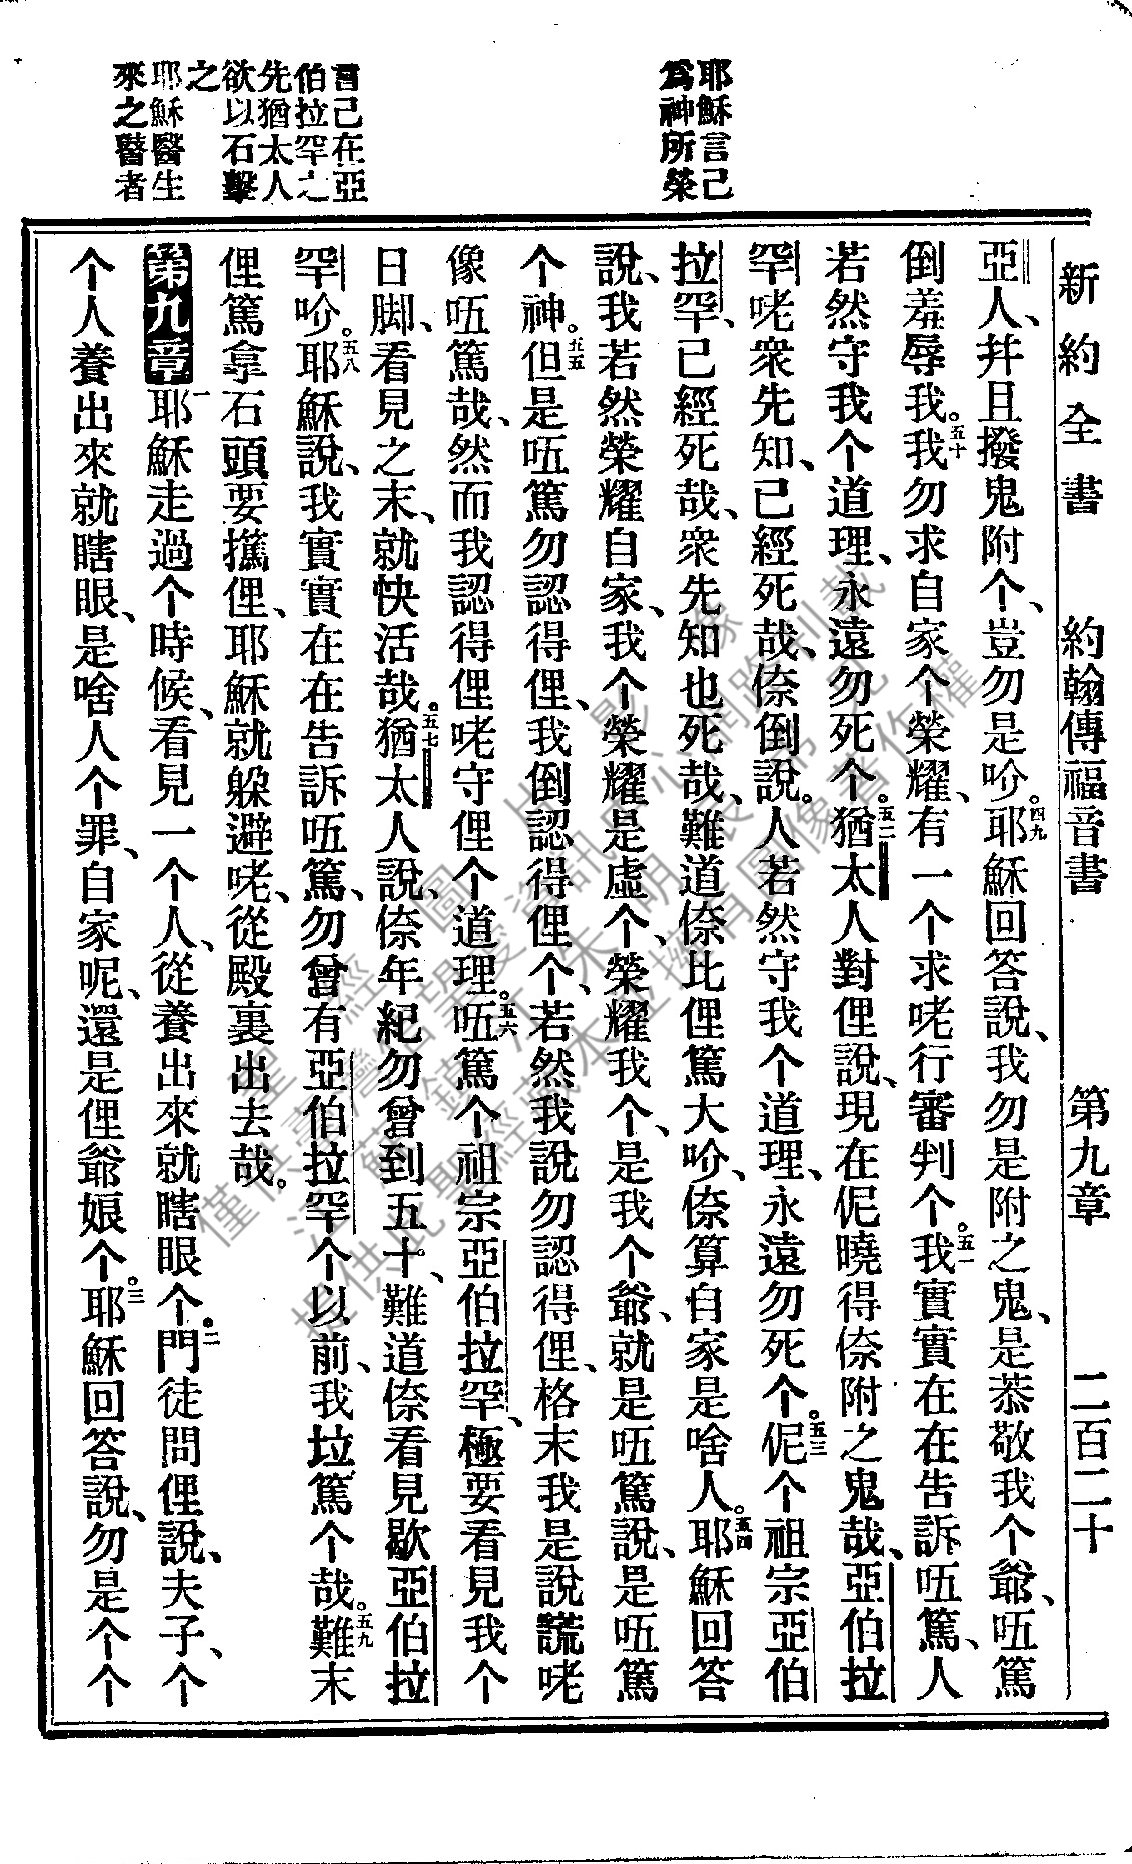 新約全書　約翰傳福音書　第九章　二百二十
耶穌言己
爲神所榮
言己在亞
伯拉罕之
先猶太人
欲以石擊
之
耶穌醫生
來之瞽者
亞人、幷且撥鬼附个、豈勿是吤。四九耶穌回答說、我勿是附之鬼、是恭敬我个爺、㑚篤
倒羞辱我。五十我勿求自家个榮耀、有一个求咾行審判个。五一我實實在在告訴㑚篤、人
若然守我个道理、永遠勿死个。五二猶太人對俚說、現在伲曉得倷附之鬼哉、亞伯拉
罕咾衆先知、已經死哉、倷倒說。人若然守我个道理、永遠勿死个。五三伲个祖宗亞伯
拉罕、已經死哉、衆先知也死哉、難道倷比俚篤大吤、倷算自家是啥人。五四耶穌回答
說、我若然榮耀自家、我个榮耀是虛个、榮耀我个、是我个爺、就是㑚篤說、是㑚篤
个神。五五但是㑚篤勿認得俚、我倒認得俚个、若然我說勿認得俚、格末我是說謊咾
像㑚篤哉、然而我認得俚咾守俚个道理。五六㑚篤个祖宗亞伯拉罕、極要看見我个
日脚、看見之末、就快活哉。五七猶太人說、倷年紀勿曾到五十、難道倷看見歇亞伯拉
罕吤。五八耶穌說、我實實在在告訴㑚篤、勿曾有亞伯拉罕个以前、我垃篤个哉。五九難末
俚篤拿石頭要攜俚、耶穌就躲避咾、從殿裏出去哉。
第九章一耶穌走過个時候、看見一个人、從養出來就瞎眼个。二門徒問俚說、夫子、个
个人養出來就瞎眼、是啥人个罪、自家呢、還是俚爺娘个。三耶穌回答說、勿是个个